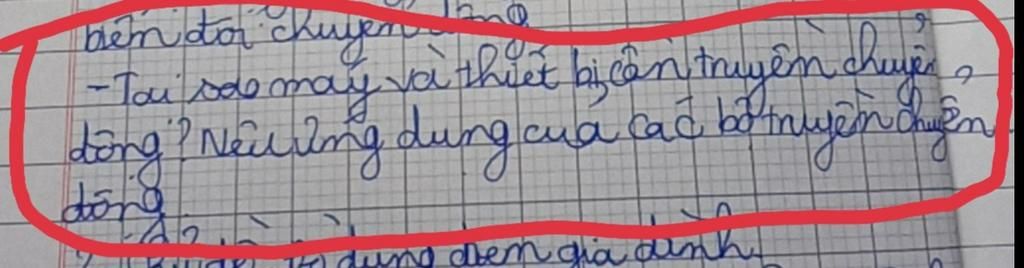 biến đổi chuyển động
- Tại sao máy và thiết bị cần truyền chuyển
động? Nêu ứng dụng của các bộ truyền chuyển
động
dùng điện gia đình